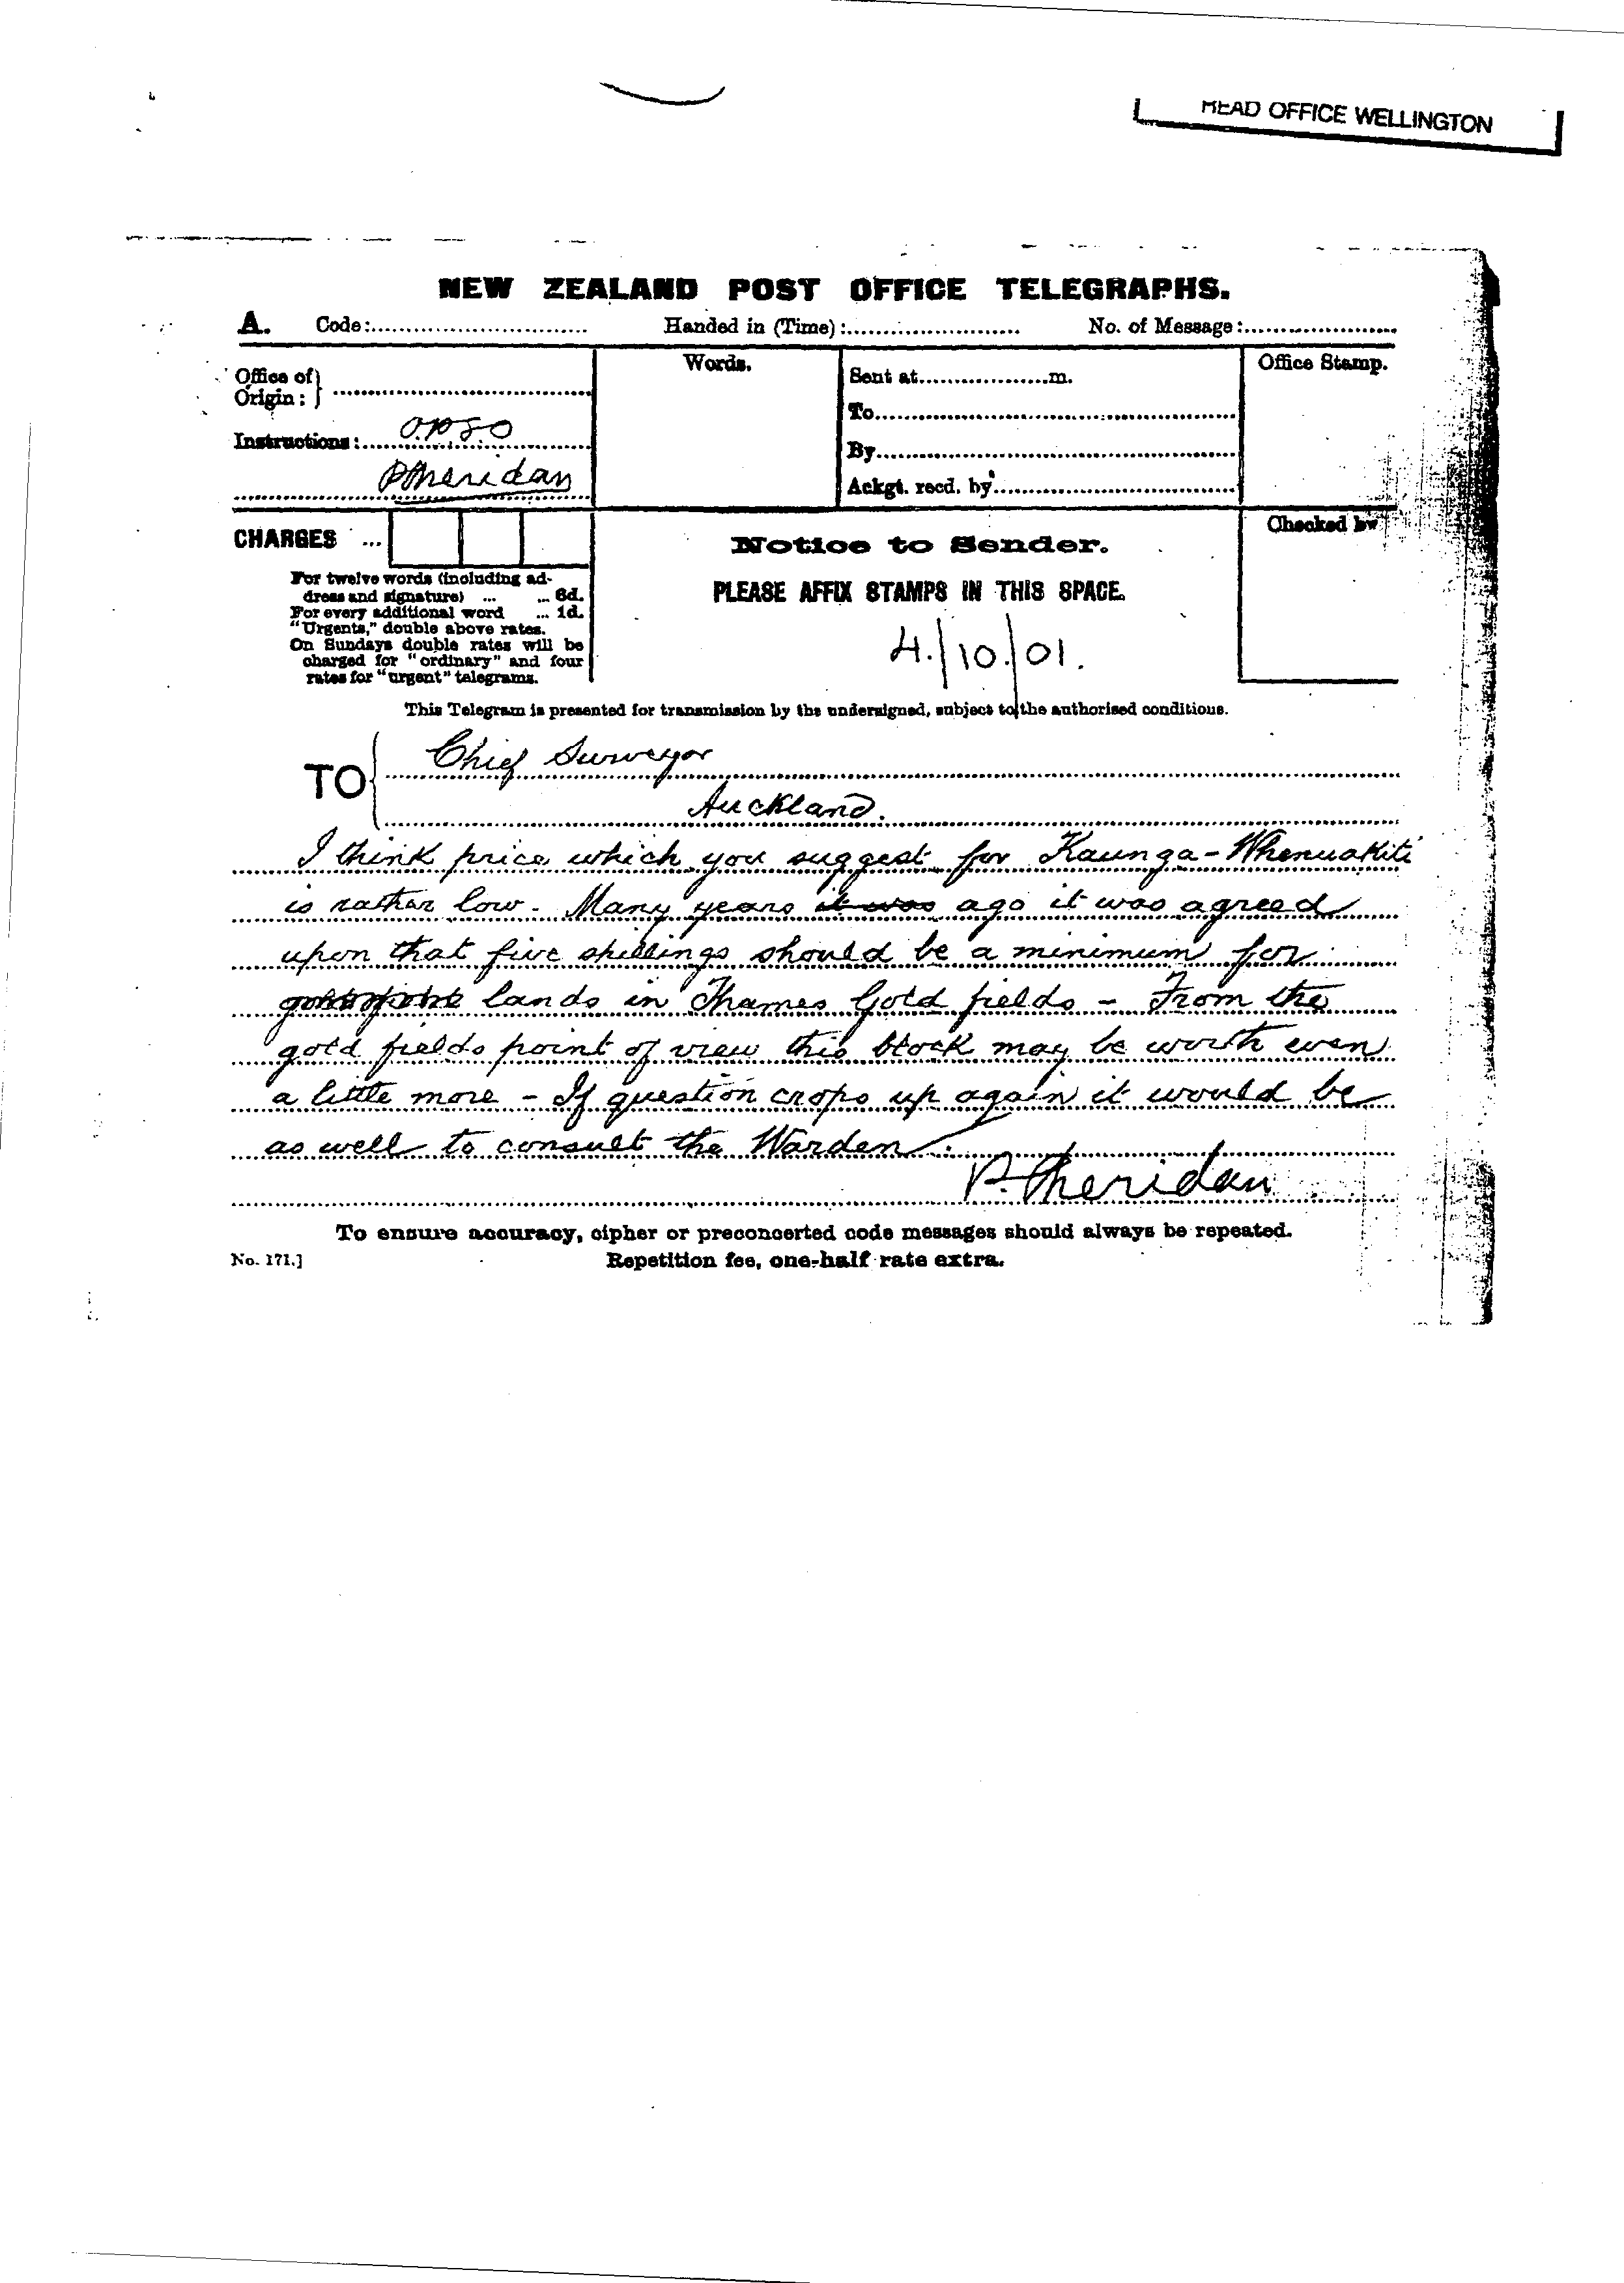 HEAD OFFICE WELLINGTON
NEW ZEALAND POST OFFICE TELEGRAPHS.
A. Code:
Handed in (Time):
No. of Message:
Office of
Origin:
Instructions:
PSheridan
Words.
Sent at m.
To
By
Ackgt. recd. by
Office Stamp.
CHARGES ...
For twelve words (including ad-
dress and signature) ... ... 6d.
For every additional word ... 1d.
"Urgents," double above rates.
On Sundays double rates will be
charged for "ordinary" and four
rates for "urgent" telegrams.
Notice to Sender.
PLEASE AFFIX STAMPS IN THIS SPACE.
4./10./01.
Checked by
This Telegram is presented for transmission by the undersigned, subject to the authorised conditions.
TO Chief Surveyor
Auckland.
I think price which you suggest for Kaunga-Whenuakiti
is rather low. Many years it was ago it was agreed
upon that five shillings should be a minimum for
lands in Thames Gold fields - From the
gold fields point of view this block may be worth even
a little more - If question crops up again it would be
as well to consult the Warden.
P. Sheridan
To ensure accuracy, cipher or preconcerted code messages should always be repeated.
No. 171.]
Repetition fee, one-half rate extra.